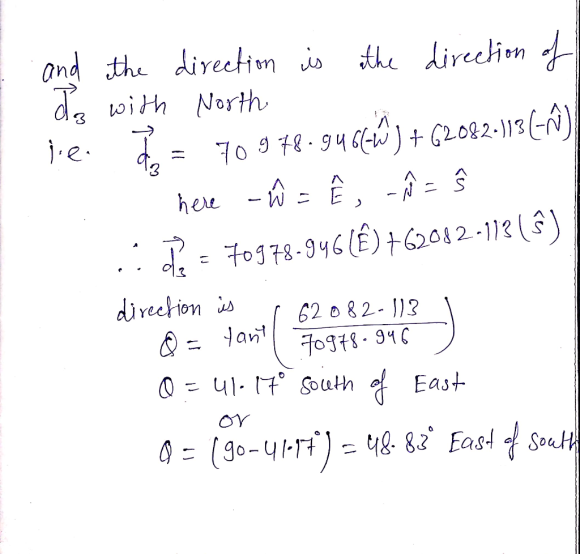 and the direction is the direction of
d⃗₃ with North
i.e. d⃗₃ = 70978.946(-Ŵ) + 62082.113(-N̂)
here -Ŵ = Ê, -N̂ = Ŝ
∴ d⃗₃ = 70978.946(Ê) + 62082.113(Ŝ)
direction is
θ = tan⁻¹(62082.113/70978.946)
θ = 41.17° South of East
or
θ = (90-41.17°) = 48.83° East of South